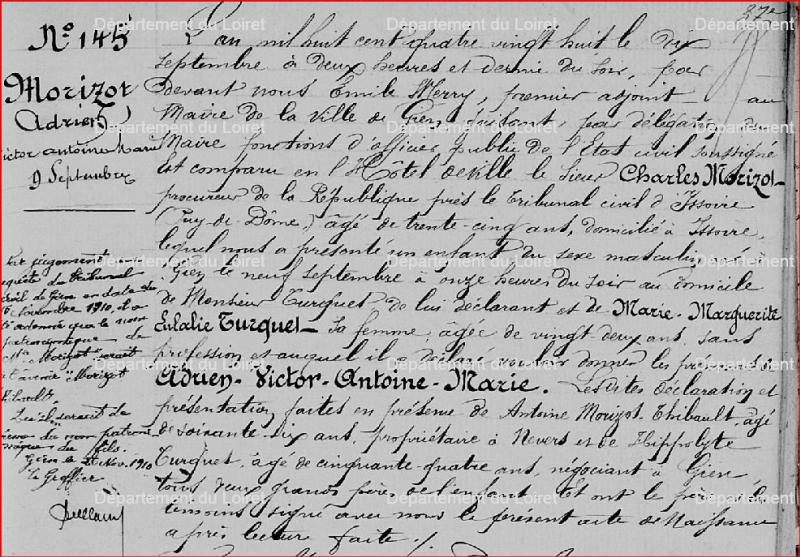 Nº 145
Morizot
Adrien
Victor Antoine Marie
9 Septembre
L'an mil huit cent quatre vingt huit le dix
septembre à deux heures et demie du soir, par
devant nous Émile Merry, premier adjoint au
Maire de la ville de Gien, par délégation du
Maire fonctions d'officier public de l'État civil soussigné
est comparu en l'Hôtel de Ville le sieur Charles Morizot
procureur de la République près le Tribunal civil d'Issoire
(Puy de Dôme) âgé de trente-cinq ans, domicilié à Issoire,
lequel nous a présenté un enfant du sexe masculin né à
Gien le neuf septembre à onze heures du soir au domicile
de Monsieur Turquet de lui déclarant et de Marie-Marguerite
Eulalie Turquet sa femme, âgée de vingt-deux ans, sans
profession et auquel il a déclaré vouloir donner les prénoms d'
Adrien-Victor-Antoine-Marie. Lesdites déclaration et
présentation faites en présence de Antoine Morizot-Thibault, âgé
de soixante dix ans, propriétaire à Nevers et de Hippolyte
Turquet, âgé de cinquante-quatre ans, négociant à Gien
tous deux grands pères de l'enfant. Et ont le père et les
témoins signé avec nous le présent acte de Naissance
après lecture faite ./.
Par jugement
requête du tribunal
civil de Gien en date du
novembre 1910, il a
été ordonné que le nom
patronymique de
Morizot serait
à l'avenir "Morizot
Thibault".
du nom patrony
mique du fils.
Gien le Nov. 1910
Le Greffier
Département du Loiret